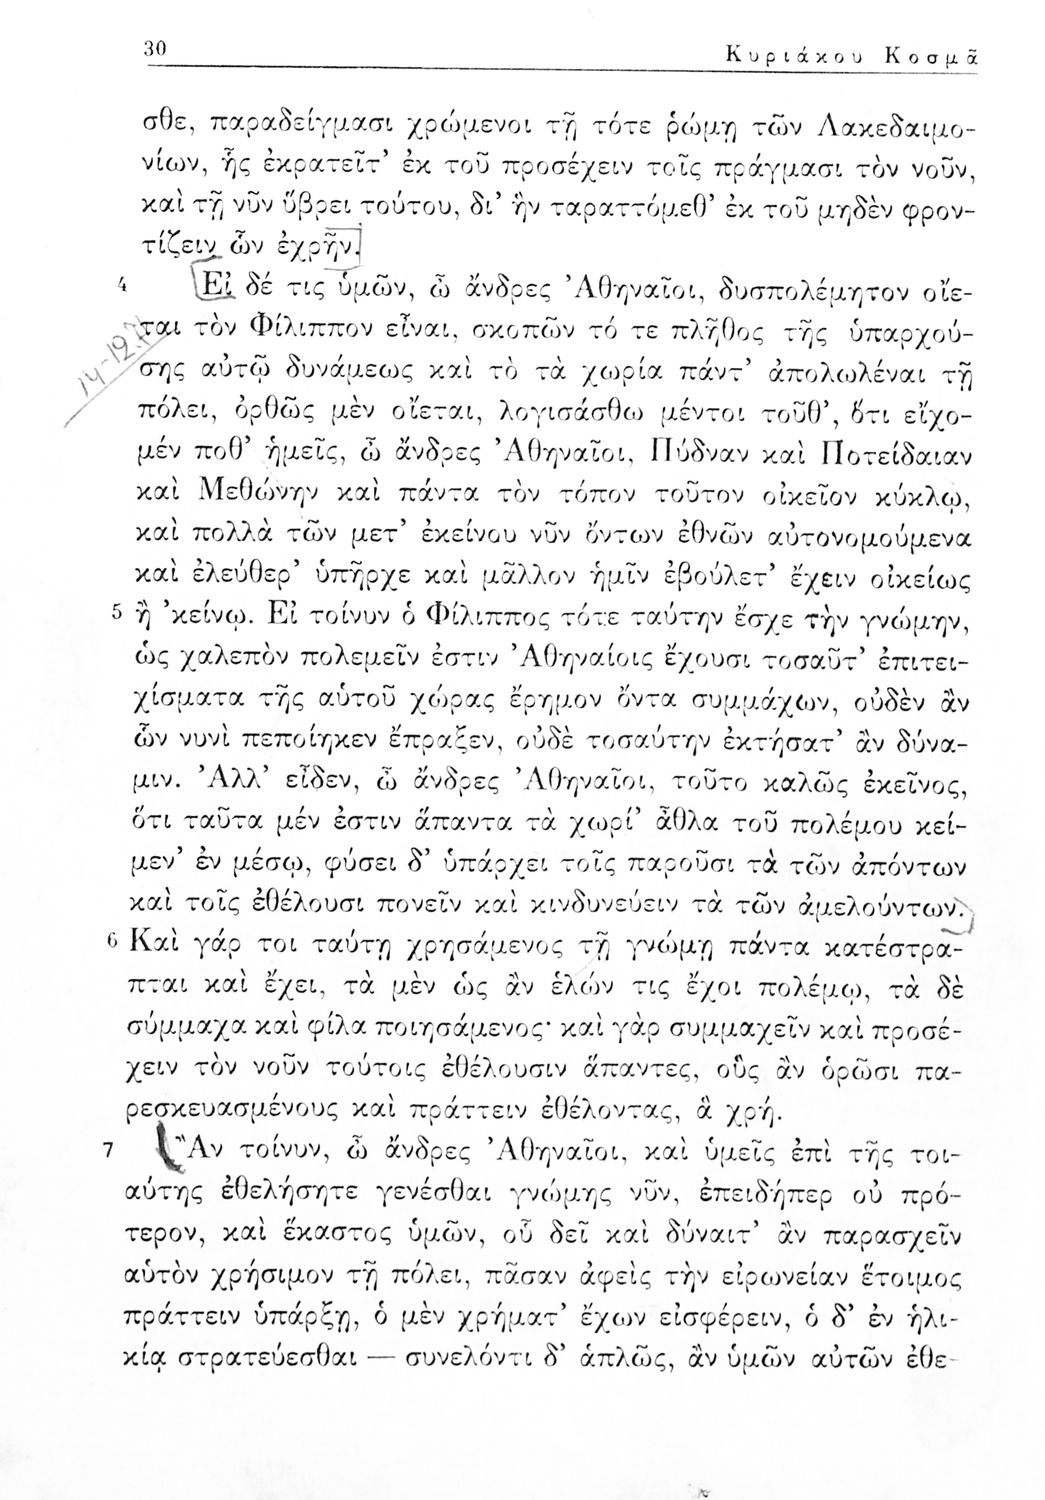 30
Κυριάκου Κοσμᾶ
σθε, παραδείγμασι χρώμενοι τῇ τότε ῥώμῃ τῶν Λακεδαιμο-
νίων, ἧς ἐκρατεῖτ’ ἐκ τοῦ προσέχειν τοῖς πράγμασι τὸν νοῦν,
καὶ τῇ νῦν ὕβρει τούτου, δι’ ἣν ταραττόμεθ’ ἐκ τοῦ μηδὲν φρον-
τίζειν ὧν ἐχρῆν.
4 Εἰ δέ τις ὑμῶν, ὦ ἄνδρες Ἀθηναῖοι, δυσπολέμητον οἴε-
ται τὸν Φίλιππον εἶναι, σκοπῶν τό τε πλῆθος τῆς ὑπαρχού-
14-12-
σης αὐτῷ δυνάμεως καὶ τὸ τὰ χωρία πάντ’ ἀπολωλέναι τῇ
πόλει, ὀρθῶς μὲν οἴεται, λογισάσθω μέντοι τοῦθ’, ὅτι εἴχο-
μέν ποθ’ ἡμεῖς, ὦ ἄνδρες Ἀθηναῖοι, Πύδναν καὶ Ποτείδαιαν
καὶ Μεθώνην καὶ πάντα τὸν τόπον τοῦτον οἰκεῖον κύκλῳ,
καὶ πολλὰ τῶν μετ’ ἐκείνου νῦν ὄντων ἐθνῶν αὐτονομούμενα
καὶ ἐλεύθερ’ ὑπῆρχε καὶ μᾶλλον ἡμῖν ἐβούλετ’ ἔχειν οἰκείως
5 ἢ ’κείνῳ. Εἰ τοίνυν ὁ Φίλιππος τότε ταύτην ἔσχε τὴν γνώμην,
ὡς χαλεπὸν πολεμεῖν ἐστιν Ἀθηναίοις ἔχουσι τοσαῦτ’ ἐπιτει-
χίσματα τῆς αὑτοῦ χώρας ἔρημον ὄντα συμμάχων, οὐδὲν ἂν
ὧν νυνὶ πεποίηκεν ἔπραξεν, οὐδὲ τοσαύτην ἐκτήσατ’ ἂν δύνα-
μιν. Ἀλλ’ εἶδεν, ὦ ἄνδρες Ἀθηναῖοι, τοῦτο καλῶς ἐκεῖνος,
ὅτι ταῦτα μέν ἐστιν ἅπαντα τὰ χωρί’ ἆθλα τοῦ πολέμου κεί-
μεν’ ἐν μέσῳ, φύσει δ’ ὑπάρχει τοῖς παροῦσι τὰ τῶν ἀπόντων
καὶ τοῖς ἐθέλουσι πονεῖν καὶ κινδυνεύειν τὰ τῶν ἀμελούντων.
6 Καὶ γάρ τοι ταύτῃ χρησάμενος τῇ γνώμῃ πάντα κατέστρα-
πται καὶ ἔχει, τὰ μὲν ὡς ἂν ἑλών τις ἔχοι πολέμῳ, τὰ δὲ
σύμμαχα καὶ φίλα ποιησάμενος· καὶ γὰρ συμμαχεῖν καὶ προσέ-
χειν τὸν νοῦν τούτοις ἐθέλουσιν ἅπαντες, οὓς ἂν ὁρῶσι πα-
ρεσκευασμένους καὶ πράττειν ἐθέλοντας, ἃ χρή.
7 Ἂν τοίνυν, ὦ ἄνδρες Ἀθηναῖοι, καὶ ὑμεῖς ἐπὶ τῆς τοι-
αύτης ἐθελήσητε γενέσθαι γνώμης νῦν, ἐπειδήπερ οὐ πρό-
τερον, καὶ ἕκαστος ὑμῶν, οὗ δεῖ καὶ δύναιτ’ ἂν παρασχεῖν
αὑτὸν χρήσιμον τῇ πόλει, πᾶσαν ἀφεὶς τὴν εἰρωνείαν ἕτοιμος
πράττειν ὑπάρξῃ, ὁ μὲν χρήματ’ ἔχων εἰσφέρειν, ὁ δ’ ἐν ἡλι-
κίᾳ στρατεύεσθαι — συνελόντι δ’ ἁπλῶς, ἂν ὑμῶν αὐτῶν ἐθε-